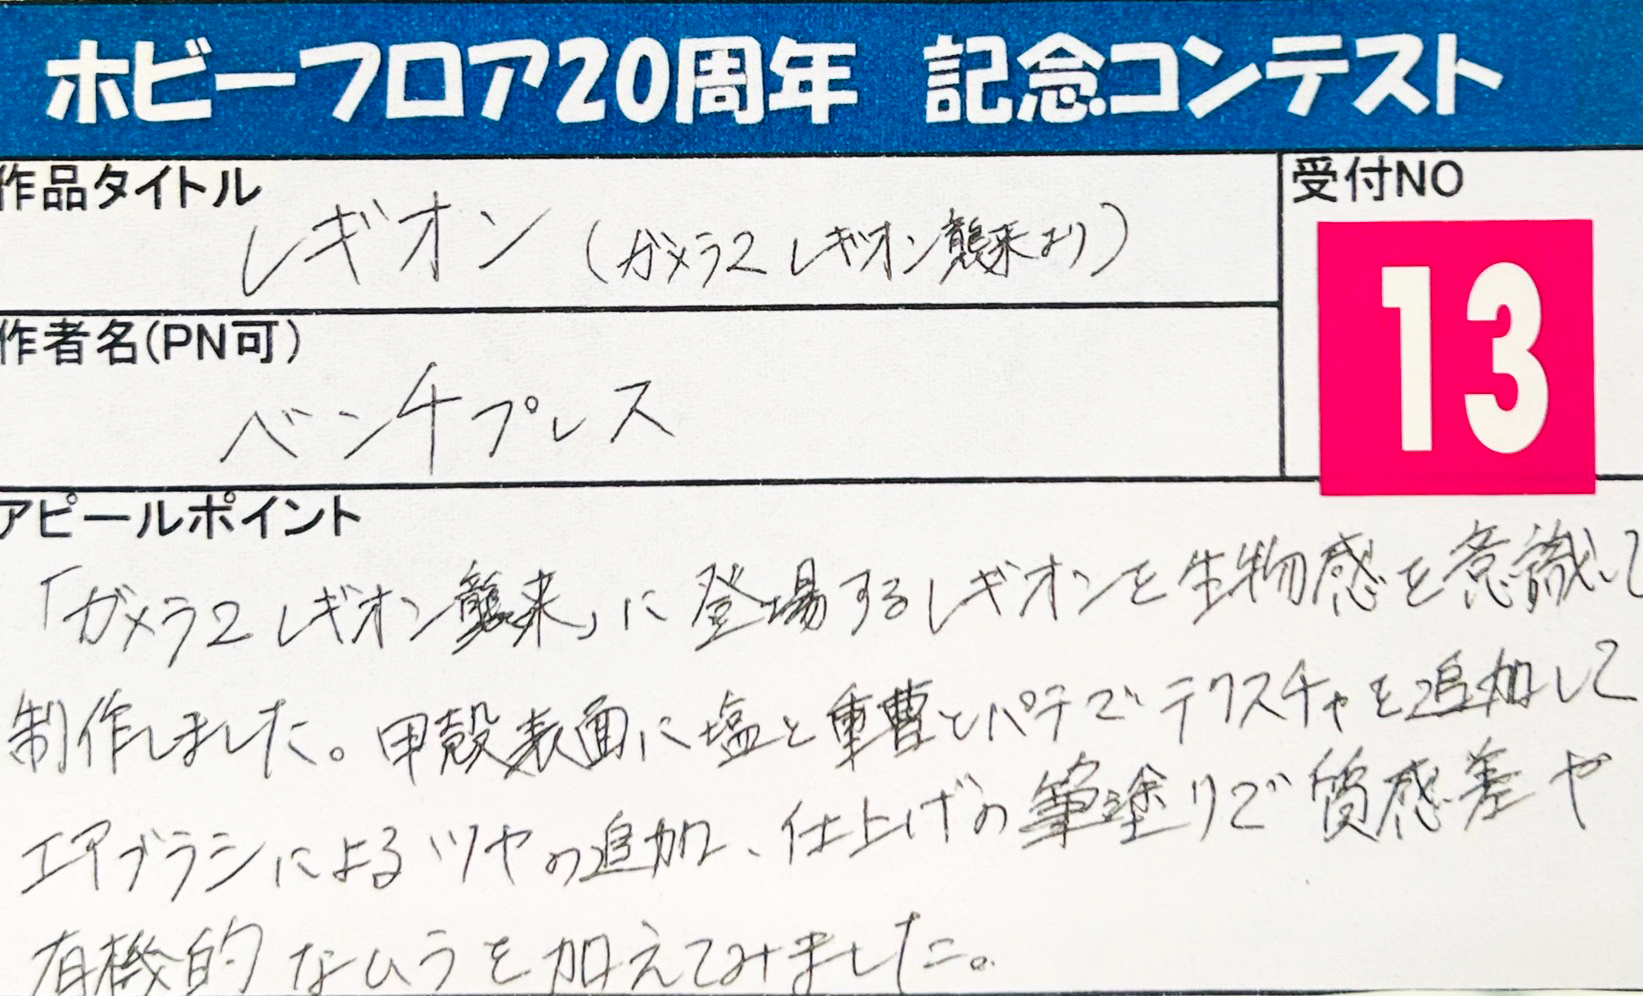 ホビーフロア20周年 記念コンテスト
作品タイトル
レギオン（ガメラ2 レギオン襲来より）
受付NO
13
作者名(PN可)
ベンチプレス
アピールポイント
「ガメラ2 レギオン襲来」に登場するレギオンを生物感を意識して
制作しました。甲殻表面に塩と重曹とパテでテクスチャを追加して
エアブラシによるツヤの追加、仕上げの筆塗りで質感差や
有機的なムラを加えてみました。